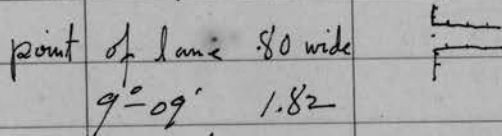 point of lane .80 wide
9°-09' 1.82